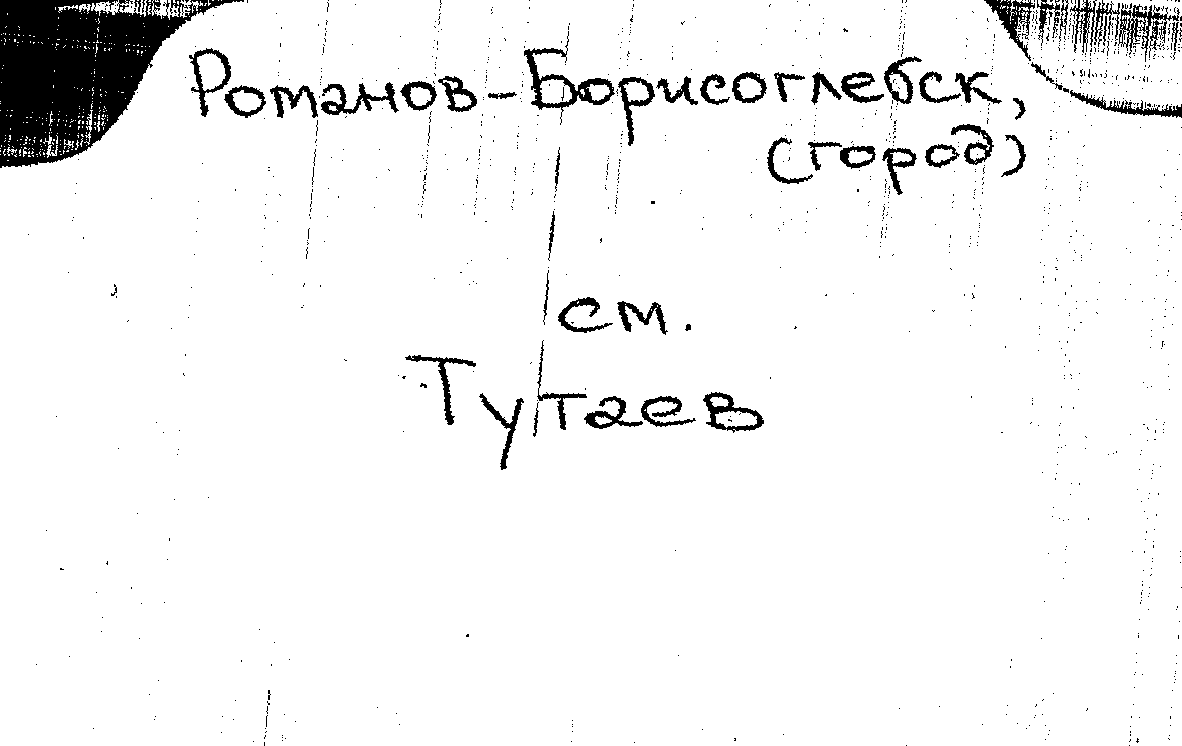 Романов-Борисоглебск,
(город)
см.
Тутаев